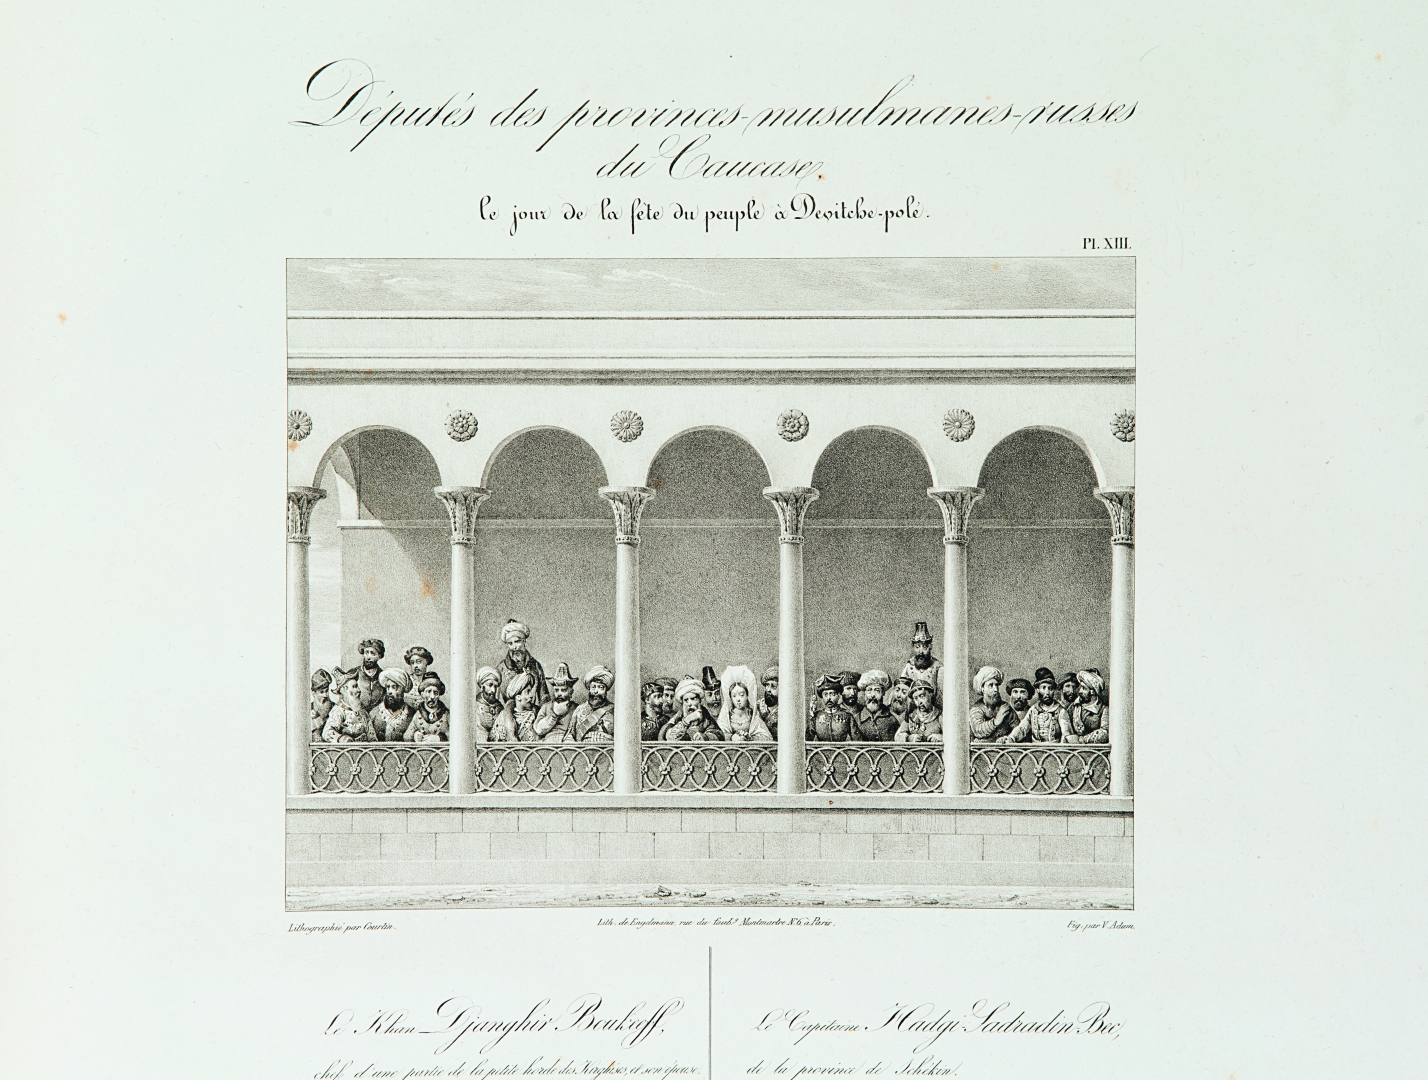 Députés des provinces-musulmanes-russes
du Caucase,
le jour de la fête du peuple à Devitche-polé.
Pl. XIII.
Lithographié par Courtin.
Lith. de Engelmann, rue du Faubg. Montmartre N.º 6, à Paris.
Fig. par V. Adam.
Le Khan Djanghir Boukeeff,
chef d'une partie de la petite horde des Kirghises, et son épouse.
Le Capitaine Hadgi-Sadradin-Bec,
de la province de Schékin.